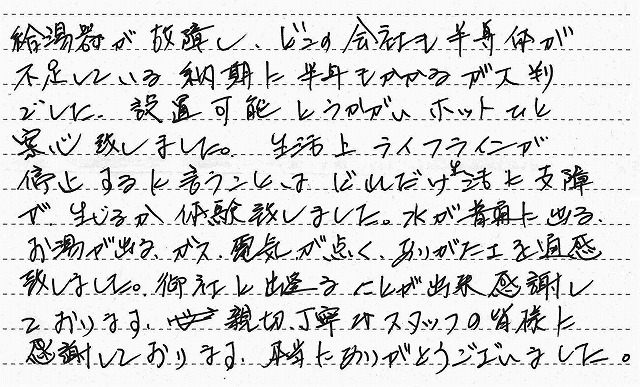 給湯器が故障し、どこの会社も半導体が
不足している 納期に半年もかかるが大判
でした。設置可能とうかがいホットひと
安心致しました。生活上ライフラインが
停止すると言うことは どれだけ生活に支障
が、生じるか体験致しました。水が普通に出る、
お湯が出る、ガス、電気が点く、ありがたさを痛感
致しました。御社と出逢うことが出来感謝し
ております。親切、丁寧なスタッフの皆様に
感謝しております。本当にありがとうございました。